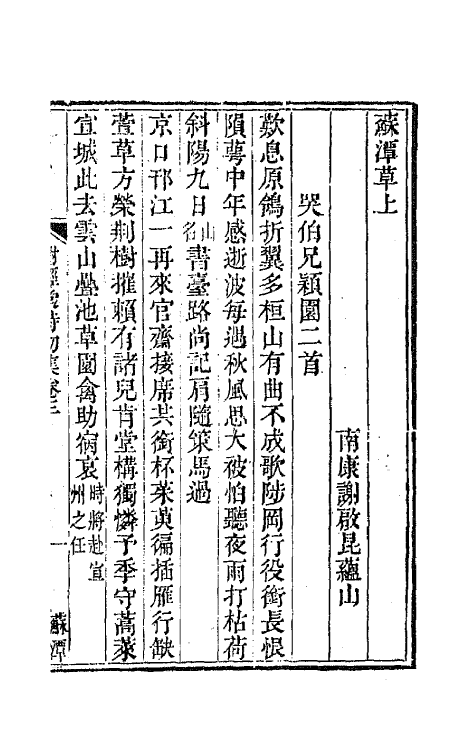 蘇潭草上
南康謝啟昆蘊山
哭伯兄穎園二首
歎息原鴒折翼多桓山有曲不成歌陟岡行役銜長恨
隕蕚中年感逝波每遇秋風思大被怕聽夜雨打枯荷
斜陽九日書臺路尚記肩隨策馬過
京口邗江一再來官齋接席共銜杯茱萸徧插雁行缺
萱草方榮荆樹摧頼有諸兒肯堂構獨憐予季守蒿萊
宣城此去雲山疊池草園禽助病哀時將赴宣州之任
樹經堂詩初集卷三
一
蘇潭